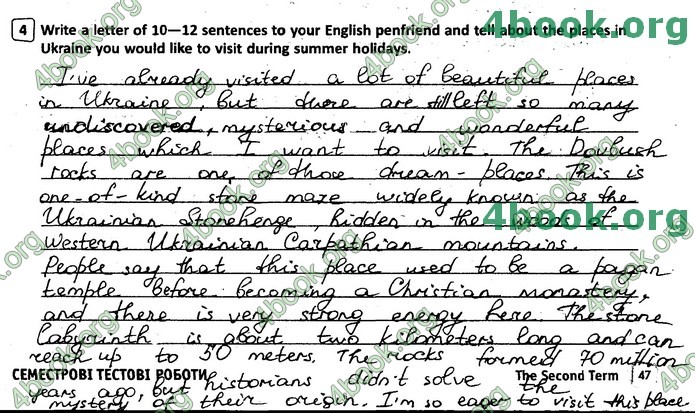 4book.org
4 Write a letter of 10—12 sentences to your English penfriend and tell about the places in
Ukraine you would like to visit during summer holidays.
I've already visited a lot of beautiful places
in Ukraine, but there are still left so many
undiscovered, mysterious and wonderful
places which I want to visit. The Dovbush
rocks are one of those dream-places. This is
one-of-kind stone maze widely known as the
Ukrainian Stonehenge, hidden in the woods of
Western Ukrainian Carpathian mountains.
People say that this place used to be a pagan
temple before becoming a Christian monastery,
and there is very strong energy here. The stone
labyrinth is about two kilometers long and can
reach up to 50 meters. The rocks formed 70 million
years ago, but historians didn't solve the
mystery of their origin. I'm so eager to visit this place
СЕМЕСТРОВІ ТЕСТОВІ РОБОТИ
The Second Term 47
4book.org